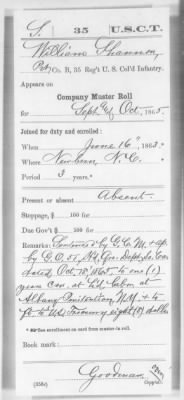 S. 35 U.S.C.T.
William Shannon
Pvt, Co. B, 35 Reg't U. S. Col'd Infantry.
Appears on
Company Muster Roll
for Sept & Oct, 1865.
Joined for duty and enrolled:
When June 16, 1863.
Where New Bern N.C.
Period 3 years.
Present or absent Absent.
Stoppage, $ 100 for
Due Gov't $ 100 for
Remarks: Sentenced by G.C.M. &
by G.O. 55, Hd. Qrs. Dept. So. Car.
dated, Oct. 18, 1865, to one (1)
year con. at h'd labor at
Albany Penitentiary N.Y. & to
U.S. Treasury eight (8) dollars
See enrollment on card from muster-in roll.
Book mark:
Goodman
(358c) Copyist.